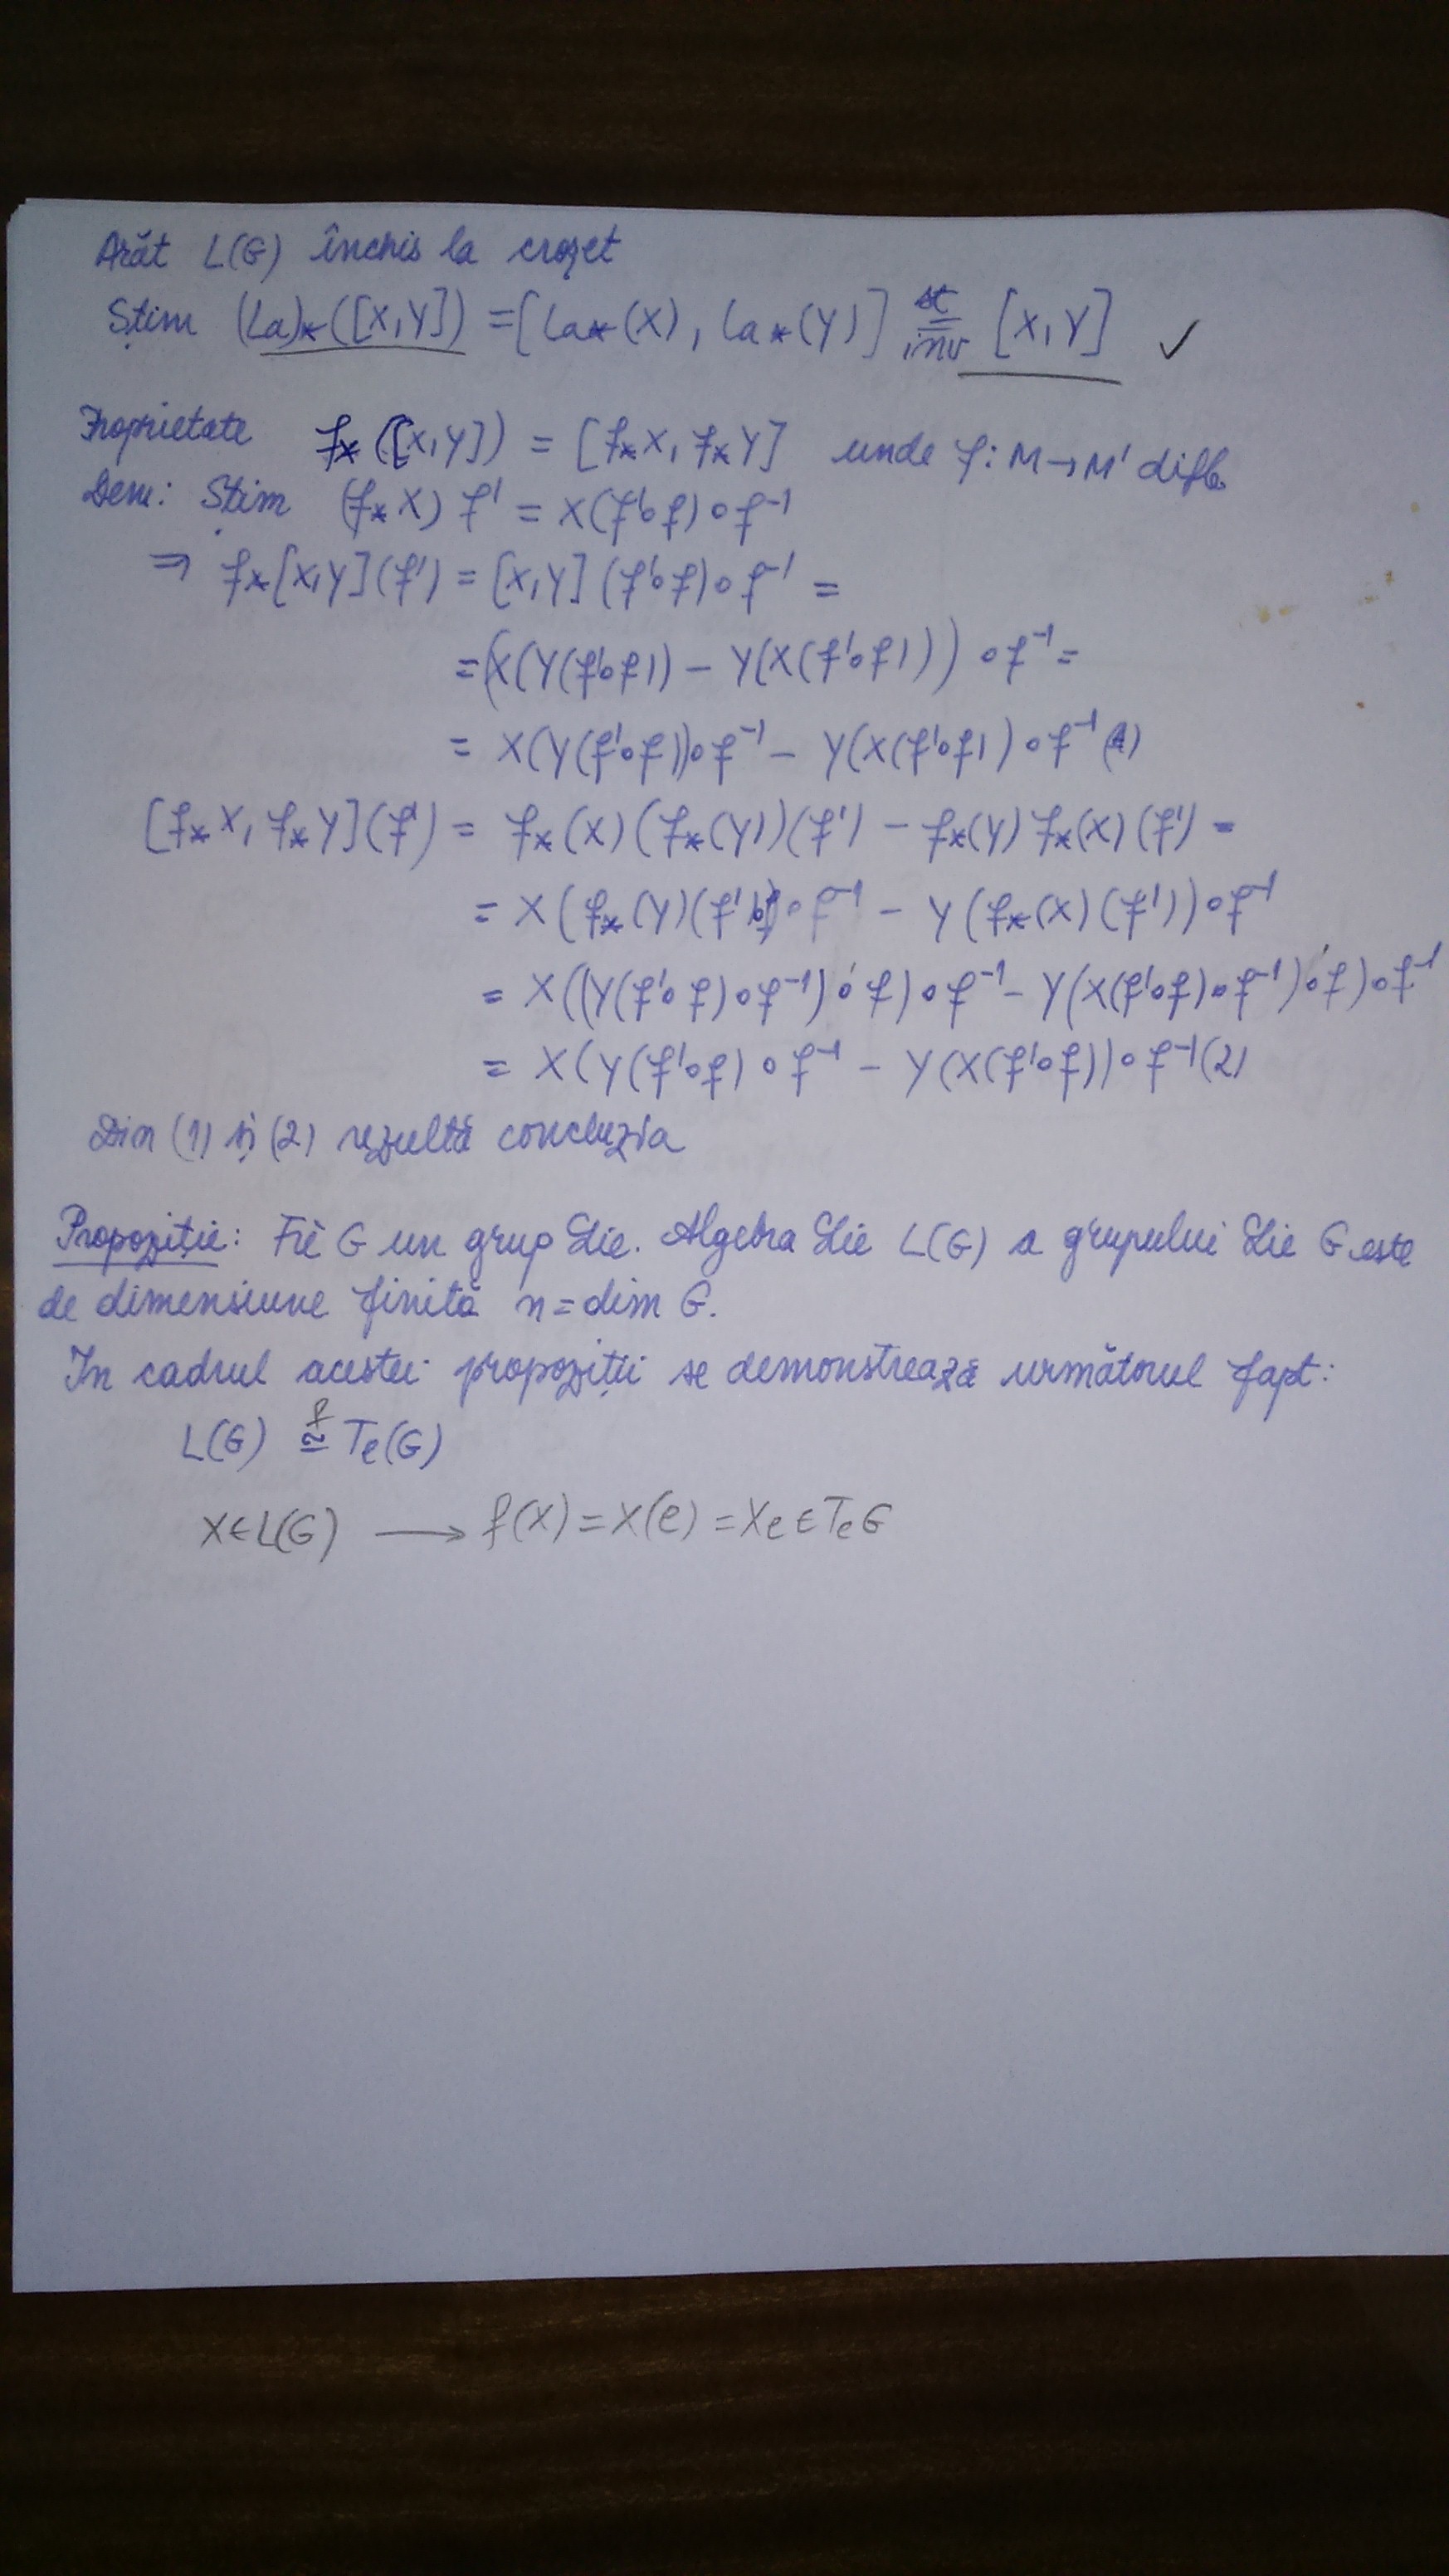 Arăt L(G) închis la croșet
Știm (La)⋆([X,Y]) = [La⋆(X), La⋆(Y)] = inv [X,Y] ✓
Proprietate f⋆([X,Y]) = [f⋆X, f⋆Y] unde f: M→M' difb.
Dem: Știm (f⋆X) f' = X(f'∘f)∘f⁻¹
⇒ f⋆[X,Y](f') = [X,Y](f'∘f)∘f⁻¹ =
= (X(Y(f'∘f)) − Y(X(f'∘f))) ∘ f⁻¹ =
= X(Y(f'∘f))∘f⁻¹ − Y(X(f'∘f)) ∘ f⁻¹ (1)
[f⋆X, f⋆Y](f') = f⋆(X)(f⋆(Y))(f') − f⋆(Y) f⋆(X)(f') =
= X(f⋆(Y)(f')∘f)∘f⁻¹ − Y(f⋆(X)(f'))∘f⁻¹
= X((Y(f'∘f)∘f⁻¹)∘f)∘f⁻¹ − Y(X(f'∘f)∘f⁻¹)∘f)∘f⁻¹
= X(Y(f'∘f)∘f⁻¹ − Y(X(f'∘f))∘f⁻¹ (2)
Din (1) și (2) rezultă concluzia
Propoziție: Fie G un grup Lie. Algebra Lie L(G) a grupului Lie G este
de dimensiune finită n = dim G.
In cadrul acestei propoziții se demonstrează următorul fapt:
L(G) f ≃ Te(G)
X∈L(G) ⟶ f(X) = X(e) = Xe ∈ TeG